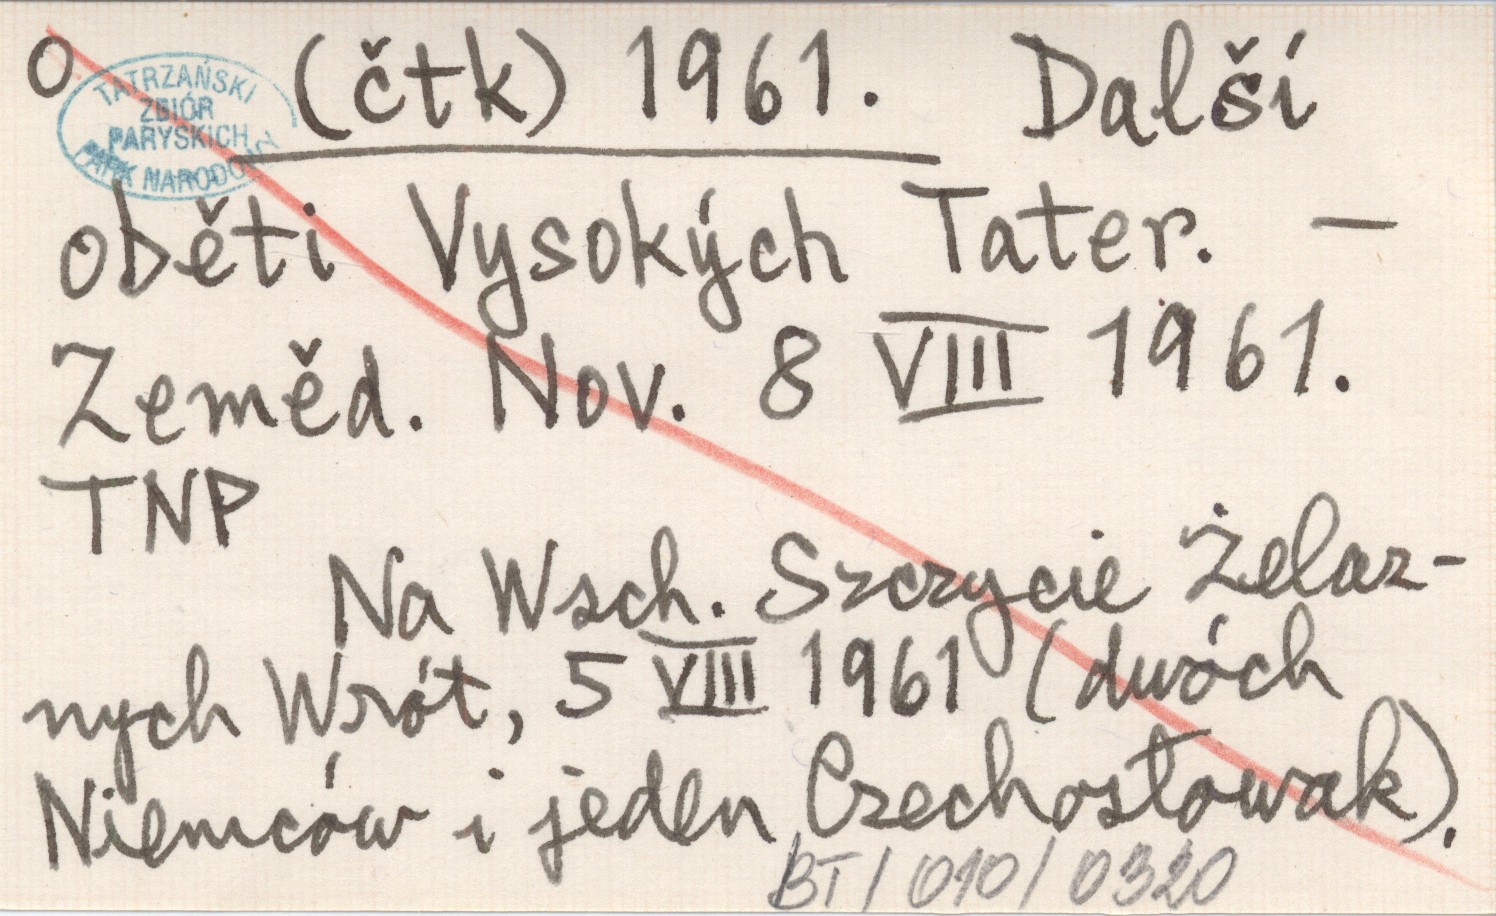 O (čtk) 1961. Další
TATRZAŃSKI
ZBIÓR
PARYSKICH
PARK NARODOWY
oběti Vysokých Tater. —
Zeměd. Nov. 8 VIII 1961.
TNP
Na Wsch. Szczycie Żelaz-
nych Wrót, 5 VIII 1961 (dwóch
Niemców i jeden Czechosłowak).
BT/010/0320